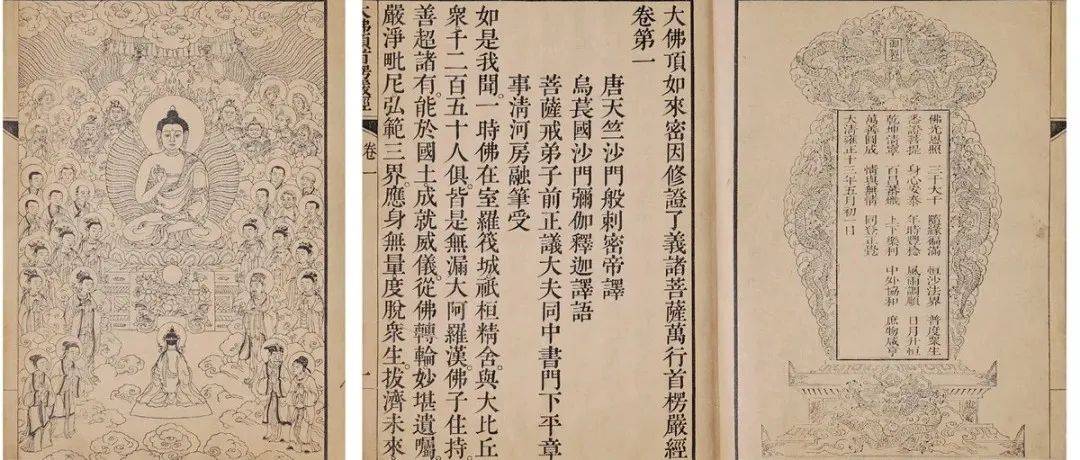 大佛頂如來密因修證了義諸菩薩萬行首楞嚴經
卷第一
唐天竺沙門般剌密帝譯
烏萇國沙門彌伽釋迦譯語
菩薩戒弟子前正議大夫同中書門下平章
事淸河房融筆受
如是我聞。一時佛在室羅筏城祇桓精舍。與大比丘
衆千二百五十人俱。皆是無漏大阿羅漢。佛子住持。
善超諸有。能於國土成就威儀。從佛轉輪妙堪遺囑。
嚴淨毗尼弘範三界。應身無量度脫衆生。拔濟未來。
大佛頂首楞嚴經 卷一 一
御製
佛光恩照 三千大千 隨緣徧滿 恒沙法界 普度衆生
悉證菩提 身心安泰 年時豐稔 風雨調順 日月升恒
乾坤清寧 百昌蕃熾 上下樂利 中外協和 庶物咸亨
萬善圓成 情與無情 同登正覺
大清雍正十二年五月初一日